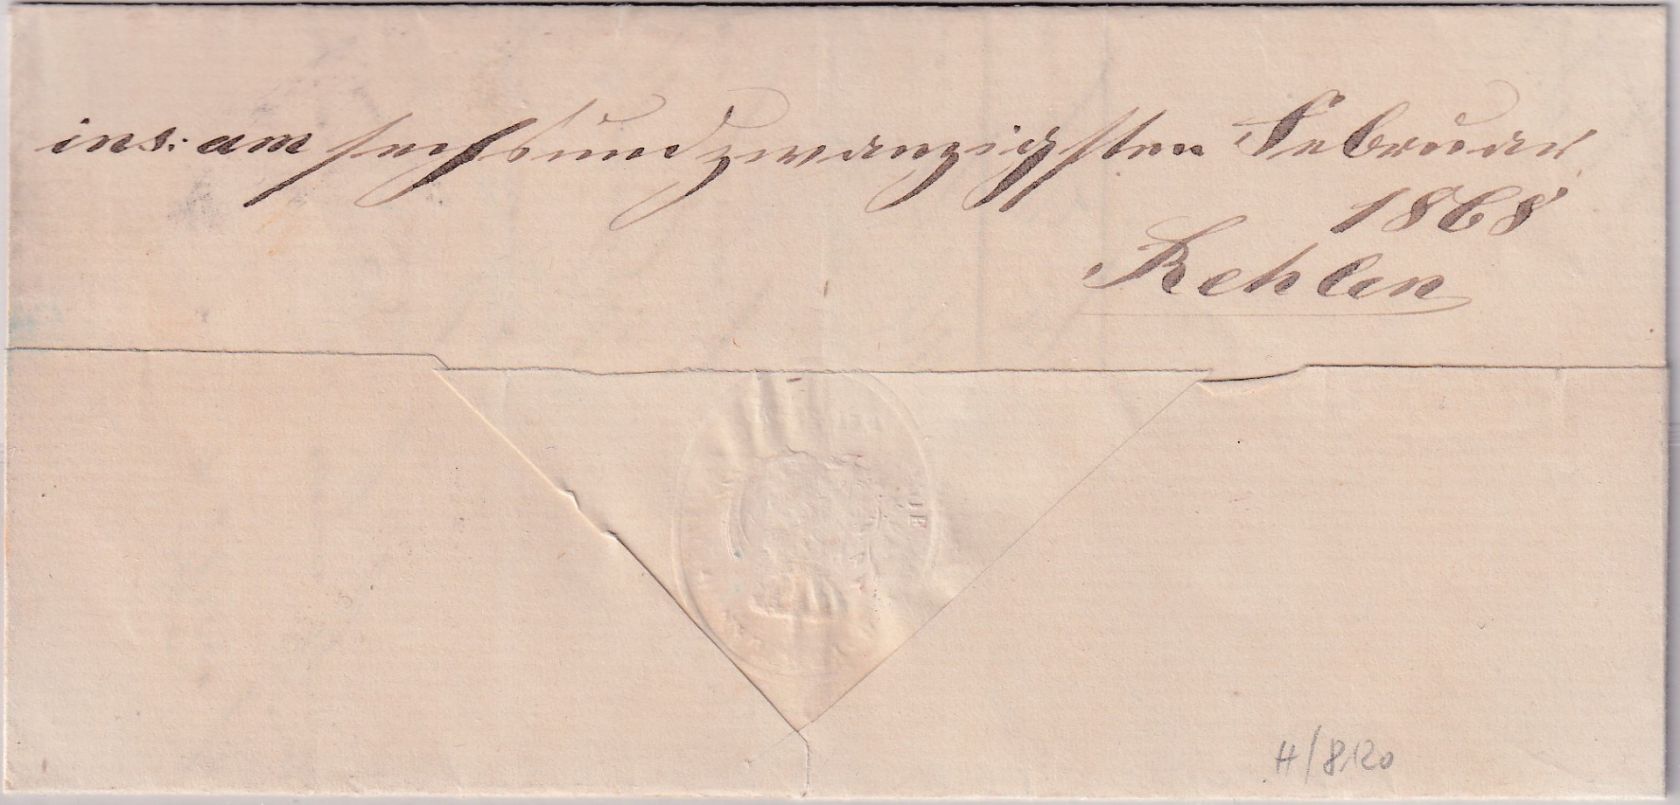 ins: am sechsundzwanzigsten Februar
1868
Rehlen
H/8,120